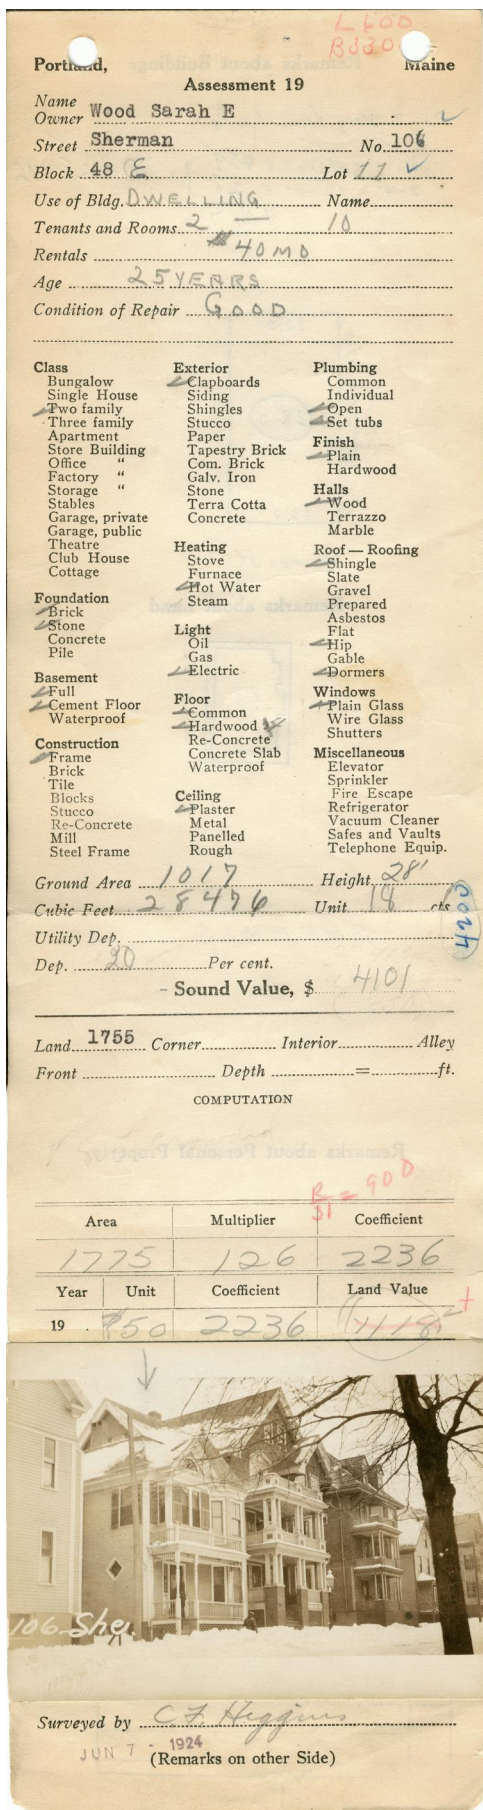 L 600
B330
Portland, Maine
Assessment 19
Name
Owner Wood Sarah E
Street Sherman No. 106
Block 48 E Lot 11
Use of Bldg. DWELLING Name
Tenants and Rooms 2 — 10
Rentals $40 MO
Age 25 YEARS
Condition of Repair GOOD
Class
Bungalow
Single House
Two family
Three family
Apartment
Store Building
Office "
Factory "
Storage "
Stables
Garage, private
Garage, public
Theatre
Club House
Cottage
Foundation
Brick
Stone
Concrete
Pile
Basement
Full
Cement Floor
Waterproof
Construction
Frame
Brick
Tile
Blocks
Stucco
Re-Concrete
Mill
Steel Frame
Exterior
Clapboards
Siding
Shingles
Stucco
Paper
Tapestry Brick
Com. Brick
Galv. Iron
Stone
Terra Cotta
Concrete
Heating
Stove
Furnace
Hot Water
Steam
Light
Oil
Gas
Electric
Floor
Common
Hardwood
Re-Concrete
Concrete Slab
Waterproof
Ceiling
Plaster
Metal
Panelled
Rough
Plumbing
Common
Individual
Open
Set tubs
Finish
Plain
Hardwood
Halls
Wood
Terrazzo
Marble
Roof — Roofing
Shingle
Slate
Gravel
Prepared
Asbestos
Flat
Hip
Gable
Dormers
Windows
Plain Glass
Wire Glass
Shutters
Miscellaneous
Elevator
Sprinkler
Fire Escape
Refrigerator
Vacuum Cleaner
Safes and Vaults
Telephone Equip.
Ground Area 1017 Height 28'
Cubic Feet 28476 Unit 18 cts
4200
Utility Dep.
Dep. 20 Per cent.
- Sound Value, $ 4101
Land 1755 Corner Interior Alley
Front Depth = ft.
COMPUTATION
B/31 = 900
Area Multiplier Coefficient
1775 126 2236
Year Unit Coefficient Land Value
19 . $50 2236 1118 +
106 She.
Surveyed by C F Higgins
JUN 7 - 1924
(Remarks on other Side)